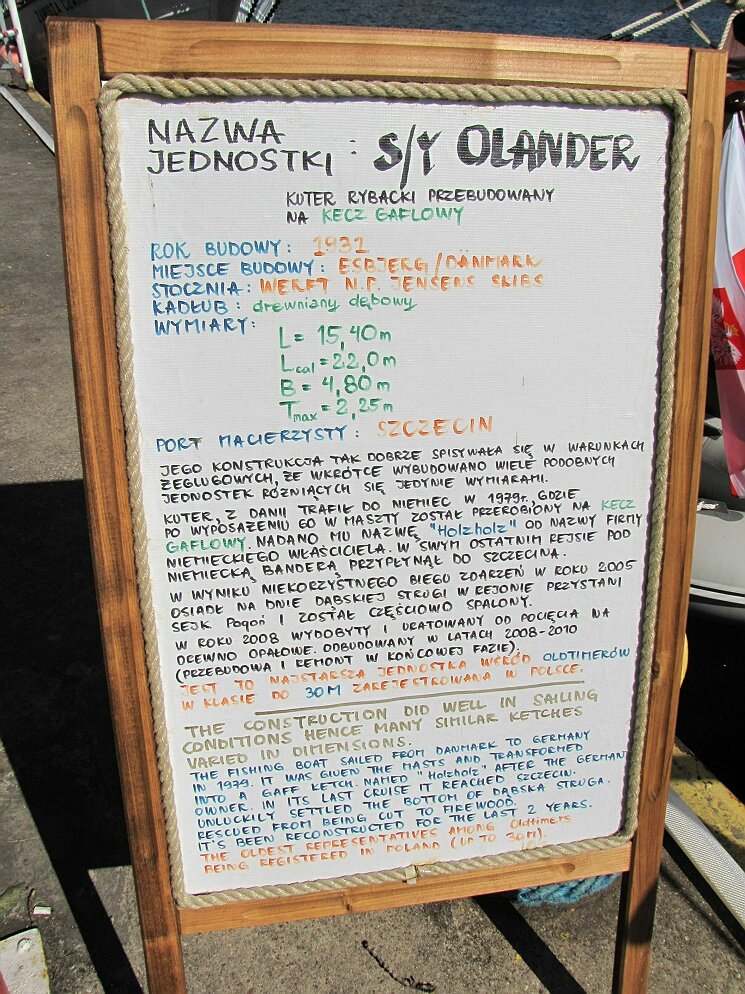 NAZWA
JEDNOSTKI : S/Y OLANDER
KUTER RYBACKI PRZEBUDOWANY
NA KECZ GAFLOWY
ROK BUDOWY: 1931
MIEJSCE BUDOWY: ESBJERG/DÄNMARK
STOCZNIA: WERFT N.P. JENSENS SKIBS
KADŁUB: drewniany dębowy
WYMIARY:
L = 15,40m
Lcal = 22,0m
B = 4,80m
Tmax = 2,25m
PORT MACIERZYSTY: SZCZECIN
JEGO KONSTRUKCJA TAK DOBRZE SPISYWAŁA SIĘ W WARUNKACH
ŻEGLUGOWYCH, ŻE WKRÓTCE WYBUDOWANO WIELE PODOBNYCH
JEDNOSTEK RÓŻNIĄCYCH SIĘ JEDYNIE WYMIARAMI.
KUTER, Z DANII TRAFIŁ DO NIEMIEC W 1979r. GDZIE
PO WYPOSAŻENIU GO W MASZTY ZOSTAŁ PRZEROBIONY NA KECZ
GAFLOWY. NADANO MU NAZWĘ "Holzholz" OD NAZWY FIRMY
NIEMIECKIEGO WŁAŚCICIELA. W SWYM OSTATNIM REJSIE POD
NIEMIECKĄ BANDERĄ PRZYPŁYNĄŁ DO SZCZECINA.
W WYNIKU NIEKORZYSTNEGO BIEGU ZDARZEŃ W ROKU 2005
OSIADŁ NA DNIE DĄBSKIEJ STRUGI W REJONIE PRZYSTANI
SEJK Pogoń I ZOSTAŁ CZĘŚCIOWO SPALONY.
W ROKU 2008 WYDOBYTY I URATOWANY OD POCIĘCIA NA
DREWNO OPAŁOWE. ODBUDOWANY W LATACH 2008-2010
(PRZEBUDOWA I REMONT W KOŃCOWEJ FAZIE).
JEST TO NAJSTARSZA JEDNOSTKA WŚRÓD OLDTIMERÓW
W KLASIE DO 30M ZAREJESTROWANA W POLSCE.
THE CONSTRUCTION DID WELL IN SAILING
CONDITIONS HENCE MANY SIMILAR KETCHES
VARIED IN DIMENSIONS.
THE FISHING BOAT SAILED FROM DANMARK TO GERMANY
IN 1979. IT WAS GIVEN THE MASTS AND TRANSFORMED
INTO A GAFF KETCH. NAMED "Holzholz" AFTER THE GERMAN
OWNER. IN ITS LAST CRUISE IT REACHED SZCZECIN.
UNLUCKILY SETTLED THE BOTTOM OF DĄBSKA STRUGA.
RESCUED FROM BEING CUT TO FIREWOOD.
IT'S BEEN RECONSTRUCTED FOR THE LAST 2 YEARS.
THE OLDEST REPRESENTATIVES AMONG Oldtimers
BEING REGISTERED IN POLAND (UP TO 30M).